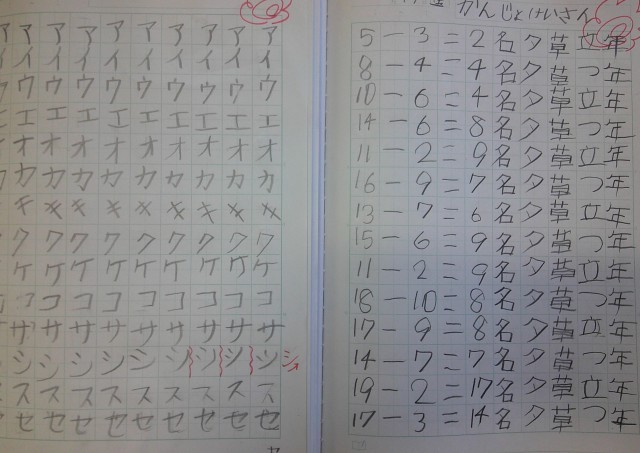 ア ア ア ア ア ア ア ア ア
イ イ イ イ イ イ イ イ イ
ウ ウ ウ ウ ウ ウ ウ ウ ウ
エ エ エ エ エ エ エ エ エ
オ オ オ オ オ オ オ オ オ
カ カ カ カ カ カ カ カ カ
キ キ キ キ キ キ キ キ
ク ク ク ク ク ク ク ク ク
ケ ケ ケ ケ ケ ケ ケ ケ ケ
コ コ コ コ コ コ コ コ
サ サ サ サ サ サ サ サ サ
シ シ シ シ シ シ シ シ シ シ
ス ス ス ス ス ス ス ス ス
セ セ セ セ セ セ セ セ セ
かんじとけいさん
5-3=2名夕草立年
8-4=4名夕草つ年
10-6=4名夕草立年
14-6=8名夕草つ年
11-2=9名夕草立年
16-9=7名夕草つ年
13-7=6名夕草立年
15-6=9名夕草つ年
11-2=9名夕草立年
18-10=8名夕草つ年
17-9=8名夕草立年
14-7=7名夕草つ年
19-2=17名夕草立年
17-3=14名夕草つ年